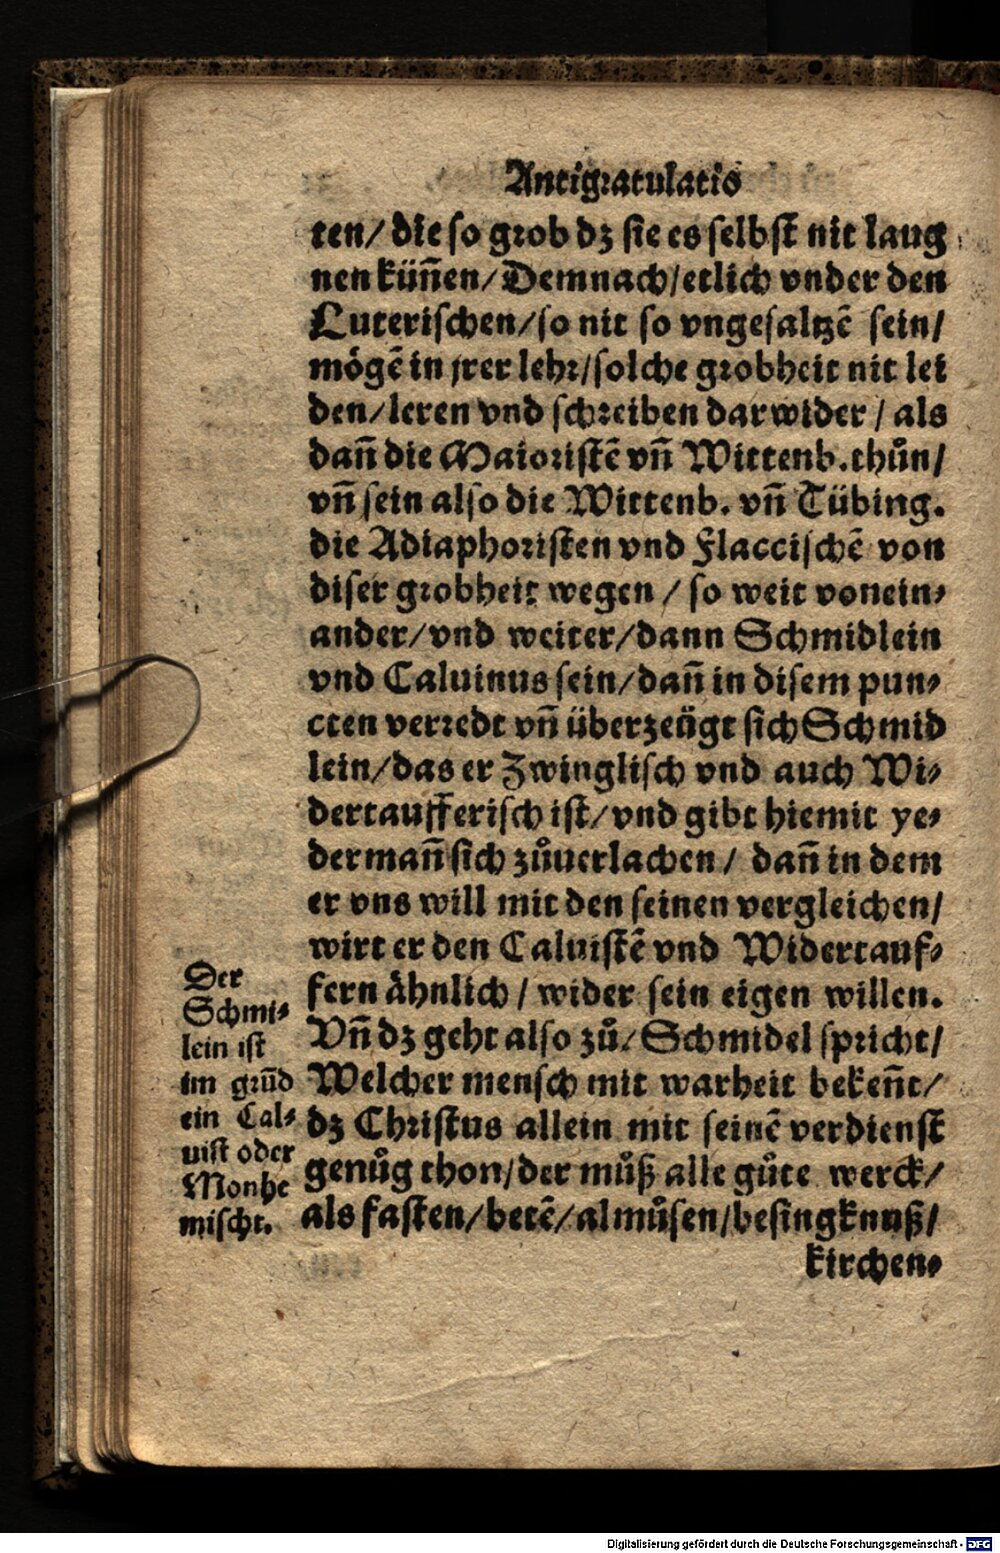 Antigratulatio
ten/ die so grob dz sie es selbst nit laug
nen küñen/ Demnach/ etlich vnder den
Luterischen/ so nit so vngesaltzē sein/
mögē in jrer lehr/ solche grobheit nit lei
den/ leren vnd schreiben darwider / als
dañ die Maioristē vñ Wittenb. thůn/
vñ sein also die Wittenb. vñ Tübing.
die Adiaphoristen vnd Flaccischē von
diser grobheit wegen / so weit vonein⸗
ander/ vnd weiter/ dann Schmidlein
vnd Caluinus sein/ dañ in disem pun⸗
cten verredt vñ überzeügt sich Schmid
lein/ das er Zwinglisch vnd auch Wi⸗
dertaufferisch ist/ vnd gibt hiemit ye⸗
dermañ sich zůuerlachen / dañ in dem
er vns will mit den seinen vergleichen/
wirt er den Caluistē vnd Widertauf⸗
fern ähnlich / wider sein eigen willen.
Vñ dz geht also zů/ Schmidel spricht/
Welcher mensch mit warheit bekeñt/
dz Christus allein mit seinē verdienst
genůg thon/ der můß alle gůte werck/
als fasten/ betē/ almůsen/ besingknuß/
kirchen⸗
Der
Schmi⸗
lein ist
im grūd
ein Cal⸗
uist oder
Monhe
mischt.
Digitalisierung gefördert durch die Deutsche Forschungsgemeinschaft - DFG